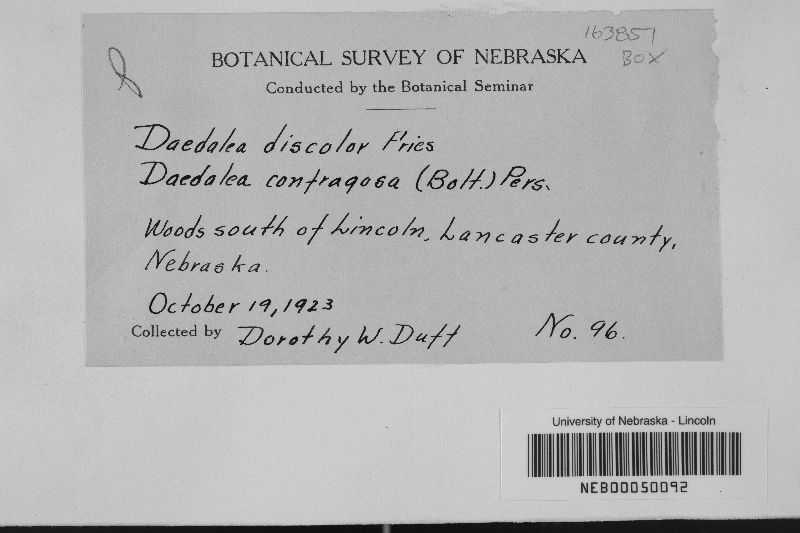 163851
BOX
BOTANICAL SURVEY OF NEBRASKA
Conducted by the Botanical Seminar
Daedalea discolor Fries
Daedalea confragosa (Bolt.) Pers.
Woods south of Lincoln, Lancaster county,
Nebraska.
October 19, 1923
Collected by Dorothy W. Duff
No. 96.
University of Nebraska - Lincoln
NEB00050092